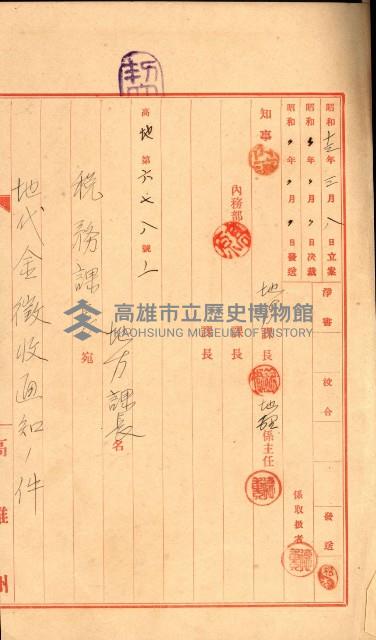 昭和十三年三月八日立案
昭和 年 月 日決裁
昭和 年 月 日發送
淨書 校合 發送
知事
內務部
地方課長
地理係主任
係取扱者
課長
課長
高地第六七八號ノ一
地方課長名
稅務課長宛
地代金徵收通知ノ件
高雄州
高雄市立歷史博物館
KAOHSIUNG MUSEUM OF HISTORY